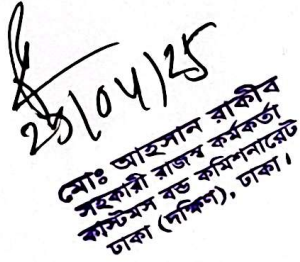 25/04/25
মোঃ আহসান রাকীব
সহকারী রাজস্ব কর্মকর্তা
কাস্টমস বন্ড কমিশনারেট
ঢাকা (দক্ষিণ), ঢাকা।